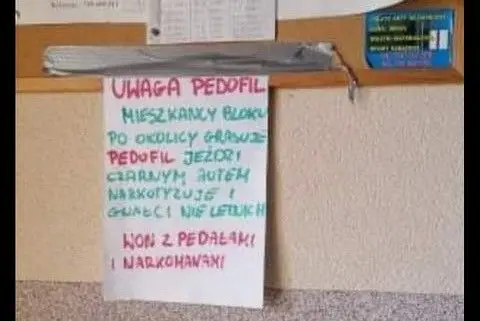 UWAGA PEDOFIL
MIESZKAŃCY BLOKU
PO OKOLICY GRASUJE
PEDOFIL JEŹDZI
CZARNYM AUTEM
NARKOTYZUJE I
GWAŁCI NIELETNICH
WON Z PEDAŁAMI
I NARKOMANAMI